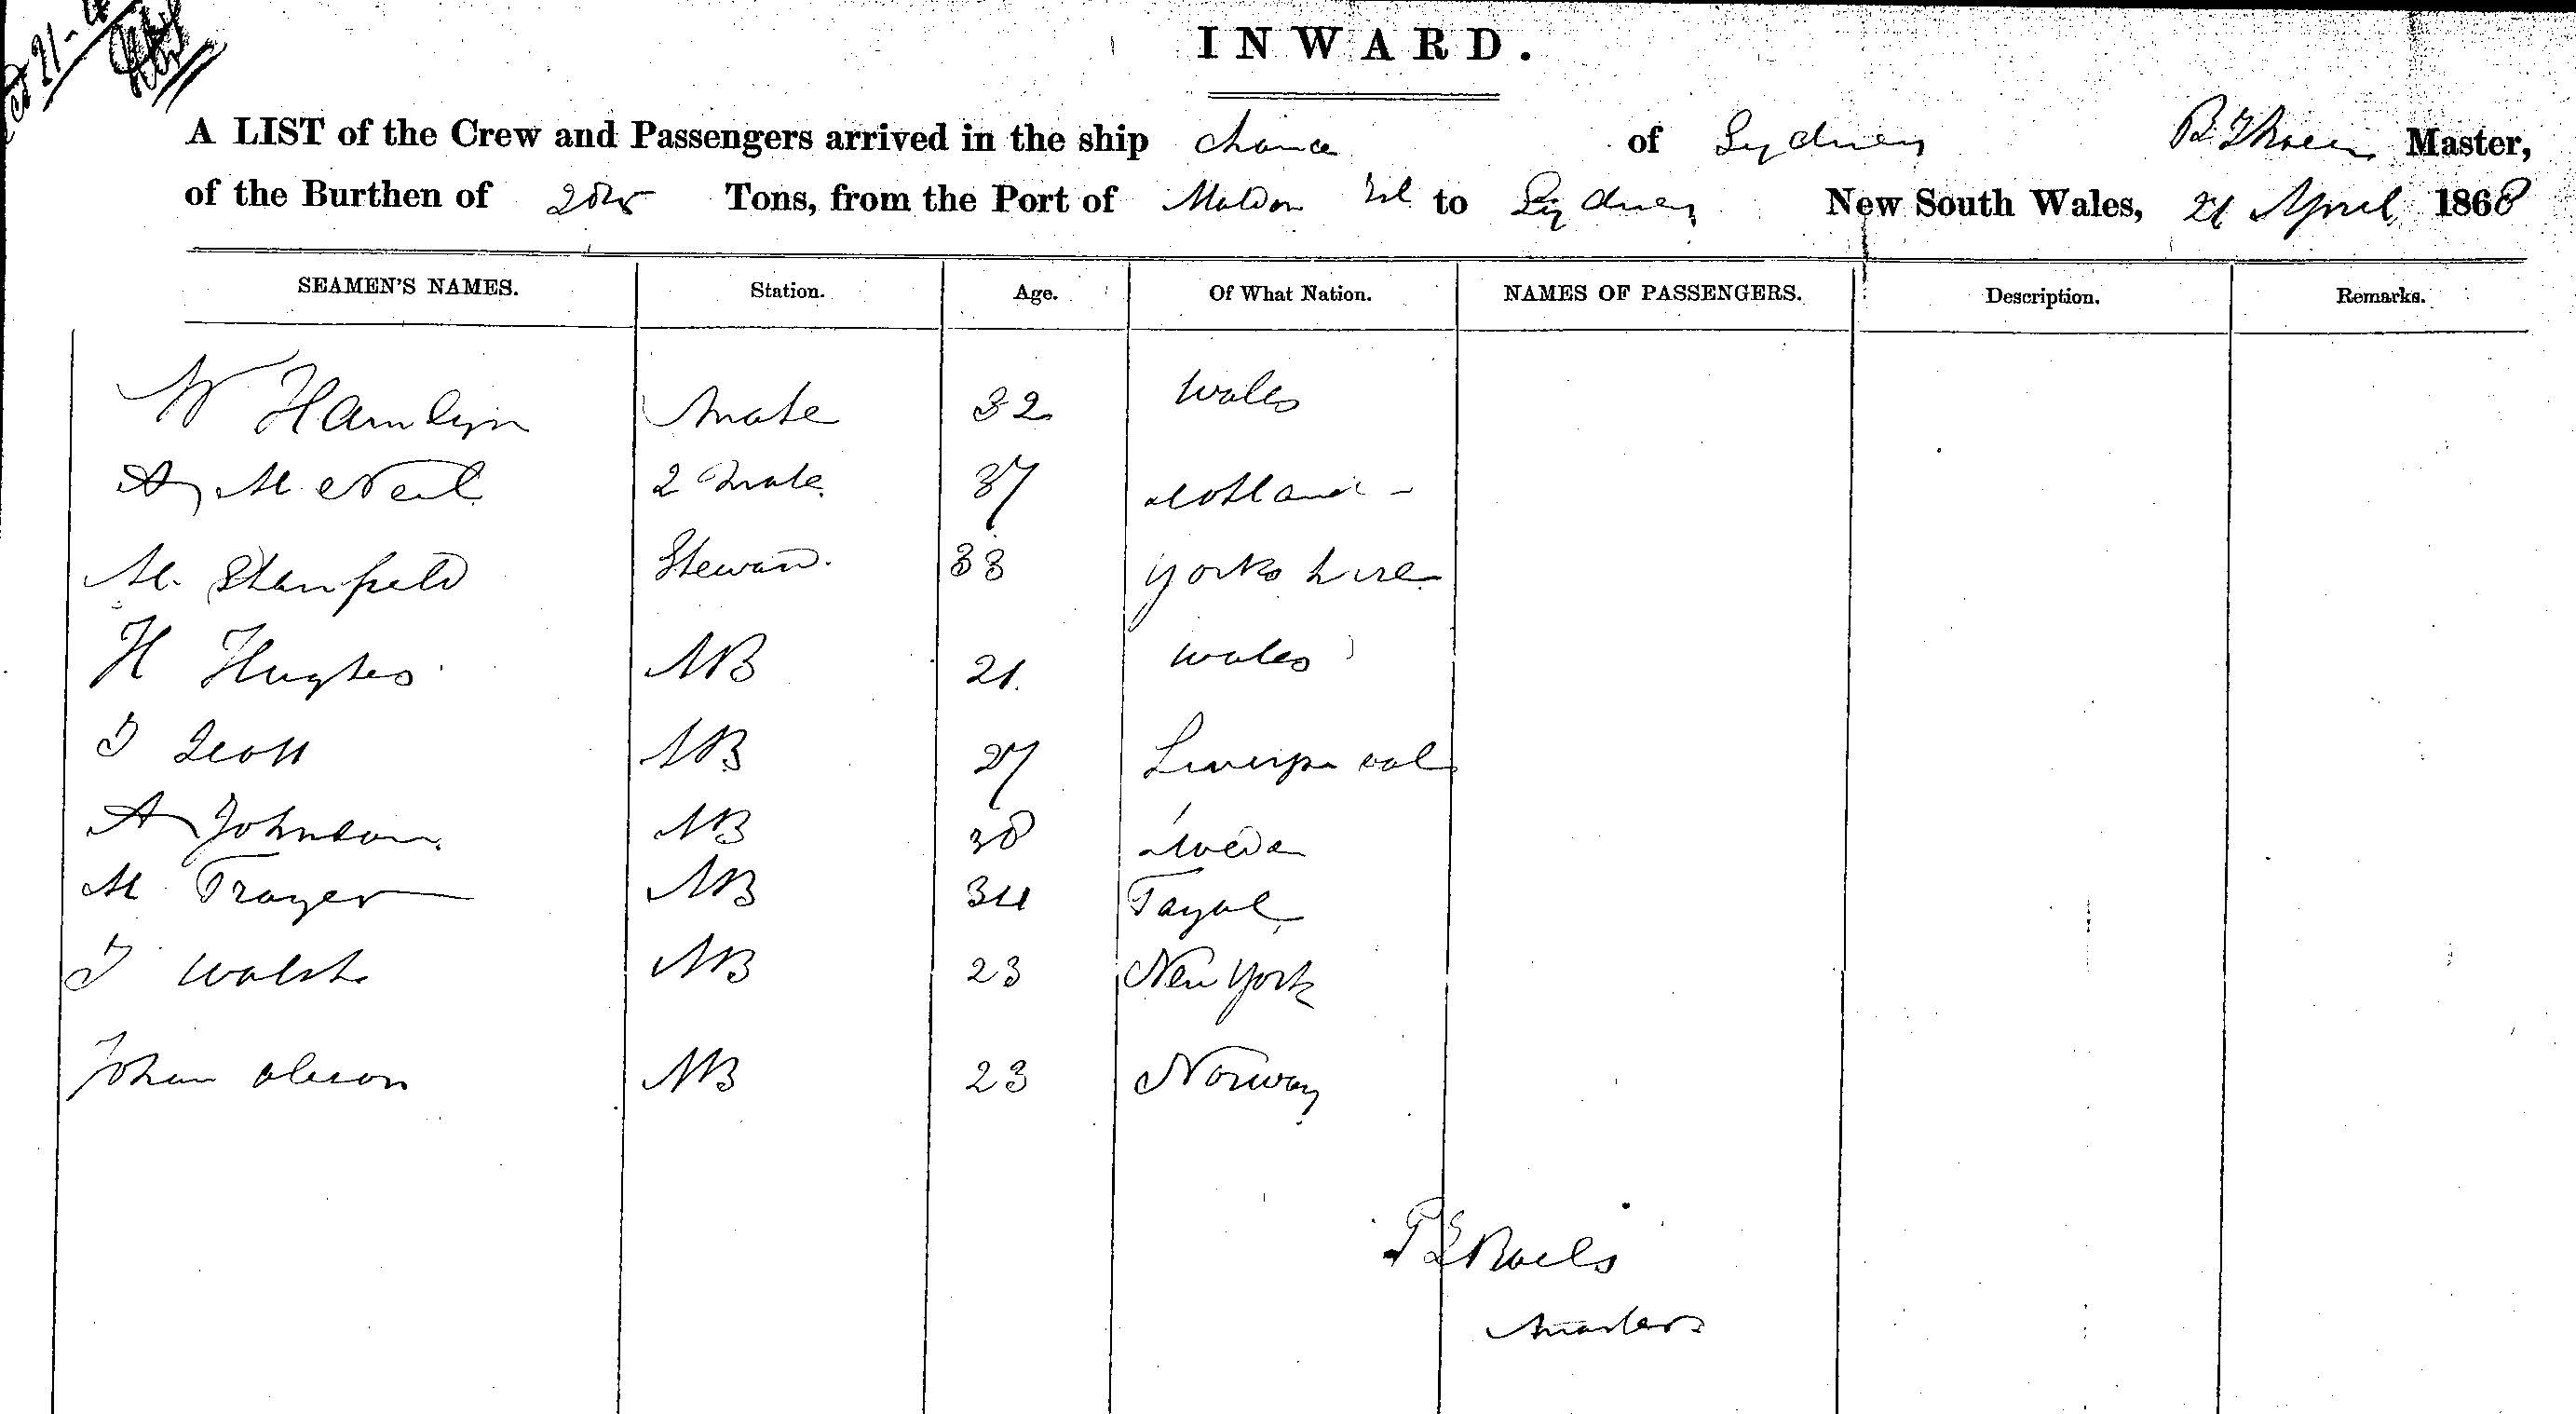 INWARD.
A LIST of the Crew and Passengers arrived in the ship Chance of Sydney Master,
of the Burthen of Tons, from the Port of Maldon Isl to Sydney New South Wales, 21 April 1868
SEAMEN'S NAMES. Station. Age. Of What Nation. NAMES OF PASSENGERS. Description. Remarks.
W Hamlyn Mate 32 Wales
A McNeil 2 Mate 37 Scotland
M. Stanfield Steward. 33 Yorkshire
H Hughes AB 21 Wales
T Scott AB 27 Liverpool
A Johnson AB 30 Sweden
M Frayer AB 34 Fayal
T Walsh AB 23 New York
Johan Olsson AB 23 Norway
Master